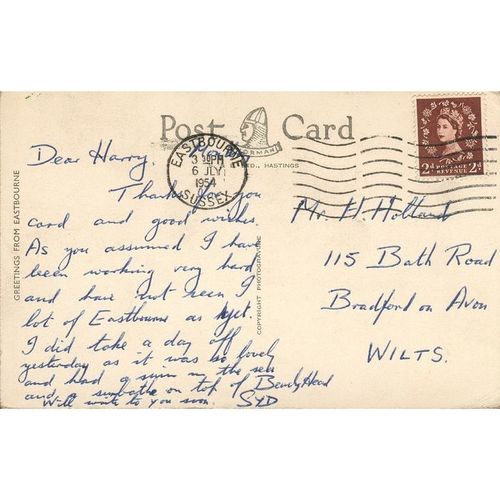 Post Card
NORMAN
LTD., HASTINGS
EASTBOURNE
6 JLY
1954
SUSSEX
2d POSTAGE REVENUE 2d
GREETINGS FROM EASTBOURNE
COPYRIGHT PHOTOGRAPH
Dear Harry,
Thanks for you
card and good wishes.
As you assumed I have
been working very hard
and have not seen a
lot of Eastbourne as yet.
I did take a day off
yesterday as it was so lovely
and had a swim in the sea
and a sunbathe on top of Beachy Head
Will write to you soon. SYD
Mr. H. Holland
115 Bath Road
Bradford on Avon
WILTS.